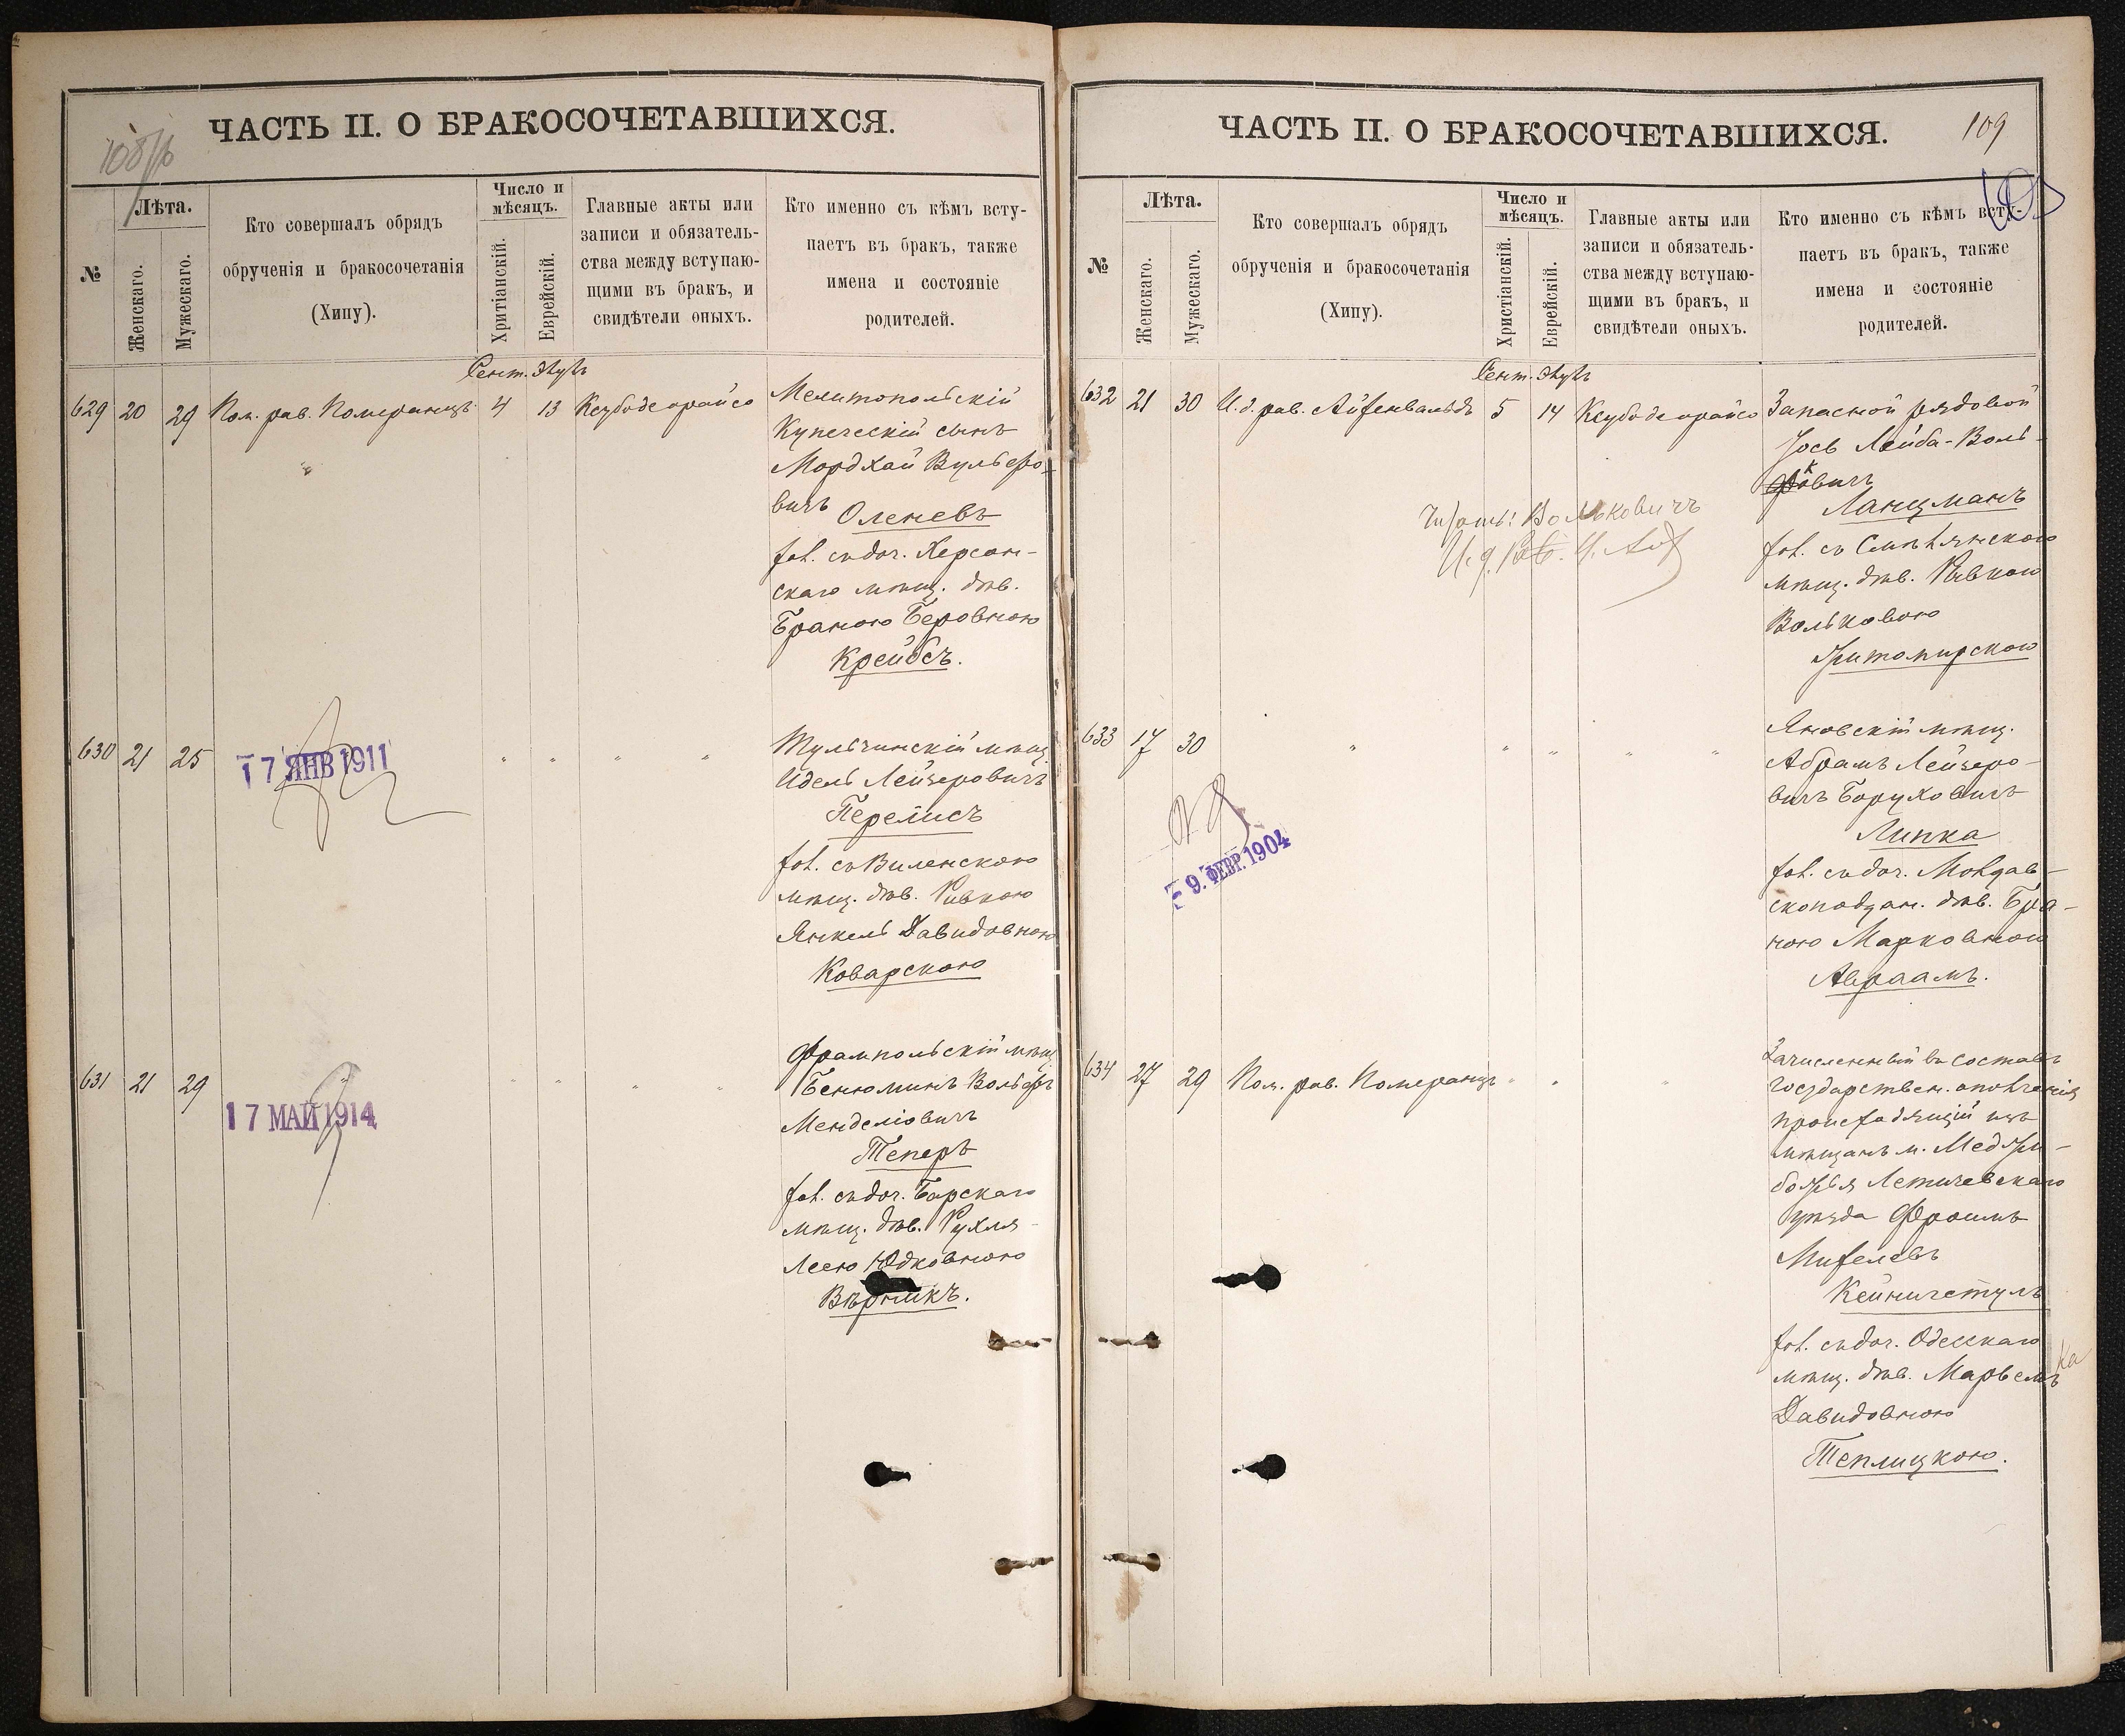 ЧАСТЬ II. О БРАКОСОЧЕТАВШИХСЯ.
№
Лѣта.
Женскаго.
Мужескаго.
Кто совершалъ обрядъ
обрученія и бракосочетанія
(Хипу).
Число и
мѣсяцъ.
Хритіанскій.
Еврейскій.
Главные акты или
записи и обязатель-
ства между вступаю-
щими въ бракъ, и
свидѣтели оныхъ.
Кто именно съ кѣмъ всту-
паетъ въ бракъ, также
имена и состояніе
родителей.
Сент. Элулъ
629 20 29 Пом. рав. Померанцъ 4 13 Ксубоде орайсо
Мелитопольскій
Купеческій сынъ
Мордхай Вульфо-
вичъ Оленевъ
хол. съ доч. Херсон-
скаго мѣщ. дѣв.
Браною Беровною
Крейбсъ.
630 21 25 " " " " "
17 ЯНВ 1911
Тульчинскій мѣщ.
Идель Лейзеровичъ
Перелисъ
хол. съ Виленскою
мѣщ. дѣв. Ривкою
Янкель Давидовною
Коварскою
631 21 29 " " " " "
17 МАЙ 1914
Фрампольскій мѣщ.
Бенюминъ Вольфъ
Менделіовичъ
Теперъ
хол. съ доч. Барскаго
мѣщ. дѣв. Рухля-
Леею Юдковною
Вѣрникъ.
ЧАСТЬ II. О БРАКОСОЧЕТАВШИХСЯ.
109
№
Лѣта.
Женскаго.
Мужескаго.
Кто совершалъ обрядъ
обрученія и бракосочетанія
(Хипу).
Число и
мѣсяцъ.
Христіанскій.
Еврейскій.
Главные акты или
записи и обязатель-
ства между вступаю-
щими въ бракъ, и
свидѣтели оныхъ.
Кто именно съ кѣмъ всту-
паетъ въ бракъ, также
имена и состояніе
родителей.
Сент. Элулъ
632 21 30 И. д. рав. Айзенвальдъ 5 14 Ксубоде орайсо
Запасной рядовой
Іось Лейба-Воль-
ковичъ
Ланцманъ
хол. съ Смѣлянскою
мѣщ. дѣв. Ривкою
Вольковою
Житомирскою
Читать: Вольковичъ
И. д. Рав.
633 17 30 " " " " "
9. ФЕВР. 1904
Яновскій мѣщ.
Абрамъ Лейзеро-
вичъ Боруховичъ
Липка
хол. съ доч. Молдав-
скоподдан. дѣв. Бра-
ною Марковною
Авраамъ.
634 27 29 Пом. рав. Померанцъ " " "
Зачисленный въ составъ
государствен. ополченія
происходящій изъ
мѣщанъ м. Меджи-
божья Летичевскаго
уѣзда Фроимъ
Михелевъ
Кейничстулъ
хол. съ доч. Одесскаго
мѣщ. дѣв. Марьемъ
Давидовною
Теплицкою.